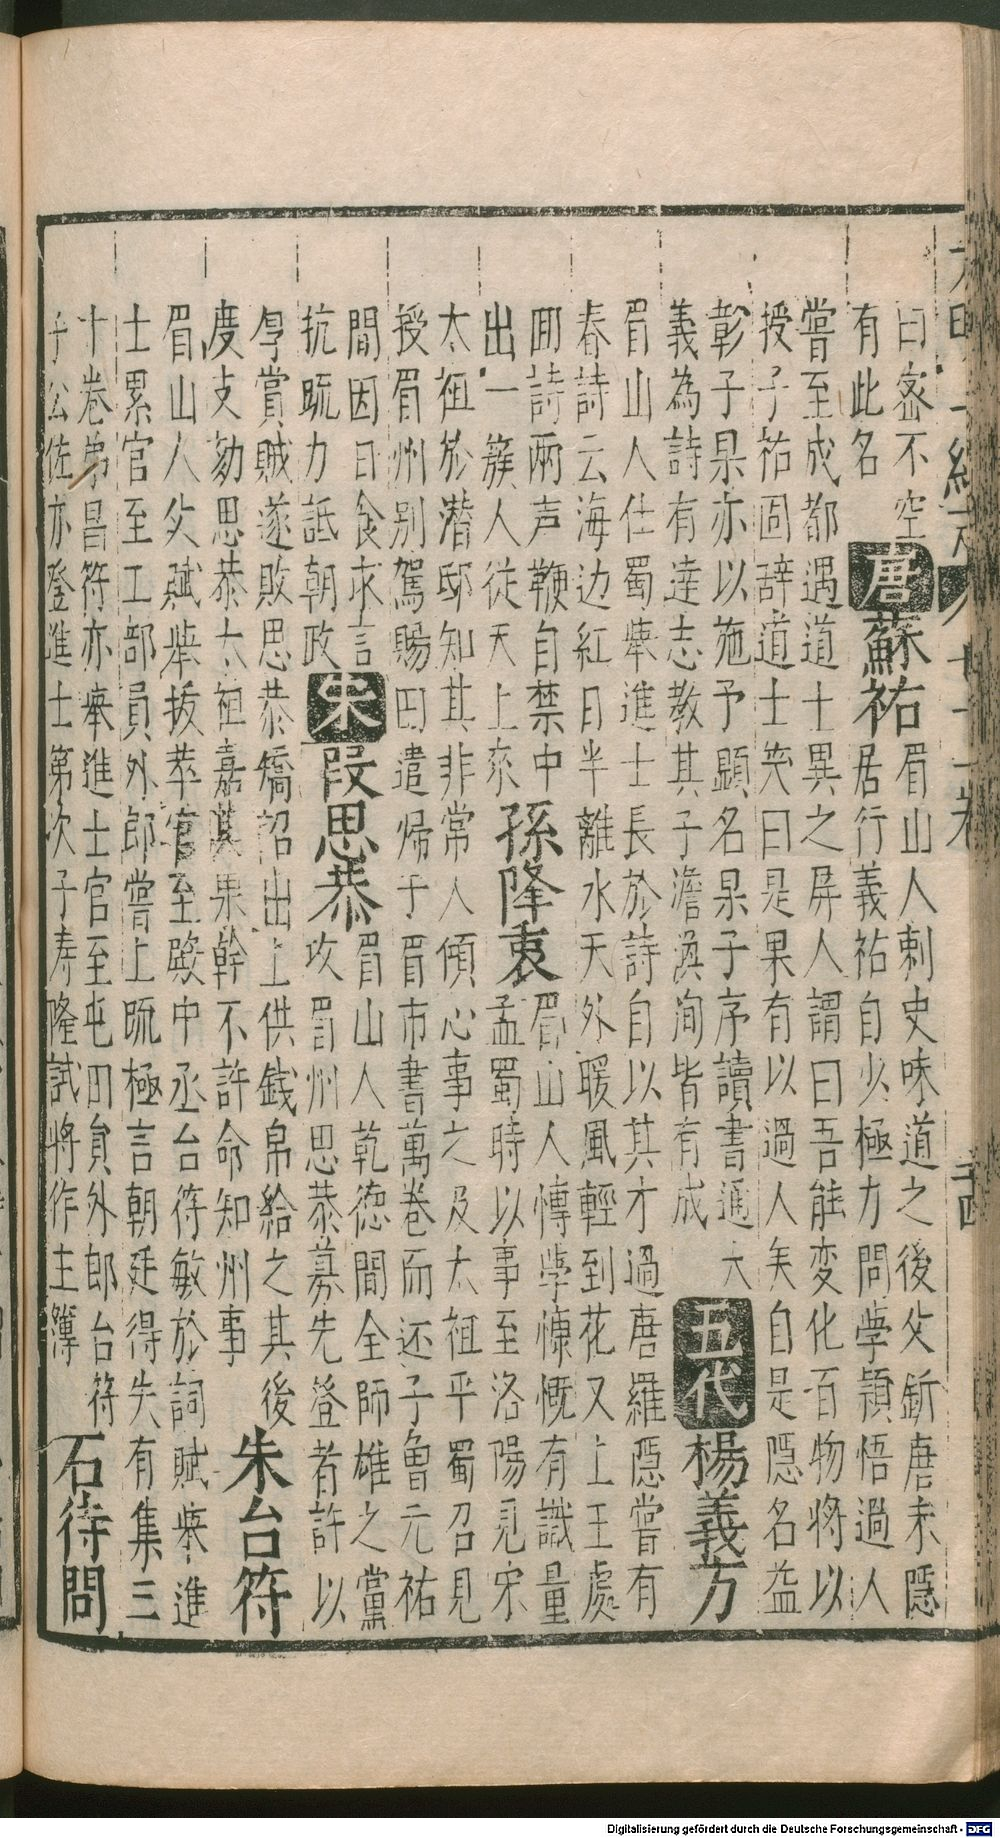 曰峚不空
有此名
唐
蘇祐
眉山人刺史味道之後父釿唐末隱
居行義祐自少極力問學穎悟過人
嘗至成都遇道士異之屏人謂曰吾能変化百物將以
授子祐固辞道士笑曰是果有以過人矣自是隱名益
彰子杲亦以施予顯名杲子序讀書通大
義為詩有達志教其子澹渙洵皆有成
五代
楊義方
眉山人仕蜀举進士長於詩自以其才過唐羅隱嘗有
春詩云海边紅日半離水天外暖風輕到花又上王處
囬詩兩声鞭自禁中
出一簇人從天上來
孫降衷
眉山人慱學慷慨有識量
孟蜀時以事至洛陽見宋
太祖於潜邸知其非常人傾心事之及太祖平蜀召見
授眉州别駕賜田遣歸于眉市書萬卷而还子魯元祐
間因日食求言
抗疏力詆朝政
宋
段思恭
眉山人乾德間全師雄之黨
攻眉州思恭募先登者許以
厚賞賊遂敗思恭矯詔出上供錢帛給之其後
度支劾思恭太祖嘉其果幹不許命知州事
朱台符
眉山人父賦举拔萃官至殿中丞台符敏於詞賦举進
士累官至工部員外郎嘗上疏極言朝廷得失有集三
十卷弟昌符亦举進士官至屯田貟外郎台符
子公佐亦登進士第次子寿隆試將作主簿
石待問
Digitalisierung gefördert durch die Deutsche Forschungsgemeinschaft - DFG